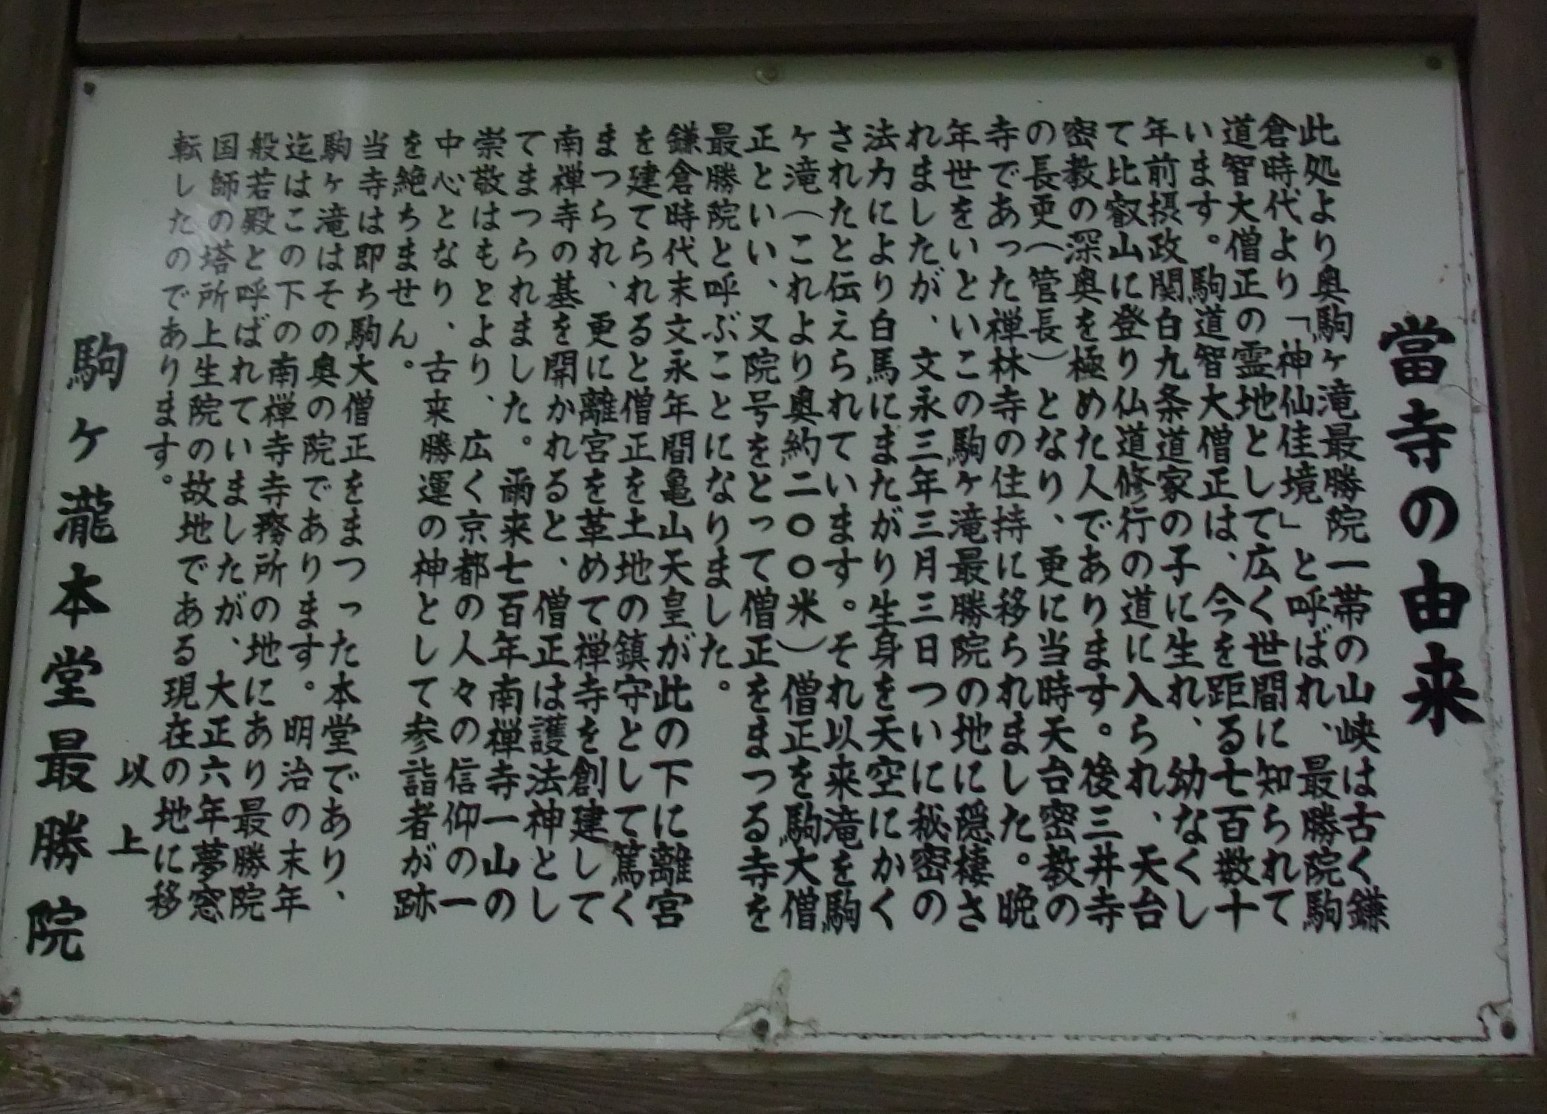 當寺の由来
此処より奥駒ヶ滝最勝院一帯の山峡は古く鎌
倉時代より「神仙佳境」と呼ばれ、最勝院駒
道智大僧正の霊地として広く世間に知られて
います。駒道智大僧正は、今を距る七百数十
年前摂政関白九条道家の子に生れ、幼なくし
て比叡山に登り仏道修行の道に入られ、天台
密教の深奥を極めた人であります。後三井寺
の長吏（管長）となり、更に当時天台密教の
寺であった禅林寺の住持に移られました。晩
年世をいといこの駒ヶ滝最勝院の地に隠棲さ
れましたが、文永三年三月三日ついに秘密の
法力により白馬にまたがり生身を天空にかく
されたと伝えられています。それ以来滝を駒
ヶ滝（これより奥約二〇〇米）僧正を駒大僧
正といい、又院号をとって僧正をまつる寺を
最勝院と呼ぶことになりました。
鎌倉時代末文永年間亀山天皇が此の下に離宮
を建てられると僧正を土地の鎮守として篤く
まつられ、更に離宮を革めて禅寺を創建して
南禅寺の基を開かれると、僧正は護法神とし
てまつられました。爾来七百年南禅寺一山の
崇敬はもとより、広く京都の人々の信仰の一
中心となり、古来勝運の神として参詣者が跡
を絶ちません。
当寺は即ち駒大僧正をまつった本堂であり、
駒ヶ滝はその奥の院であります。明治の末年
迄はこの下の南禅寺寺務所の地にあり最勝院
般若殿と呼ばれていましたが、大正六年夢窓
国師の塔所上生院の故地である現在の地に移
転したのであります。
以上
駒ヶ瀧本堂最勝院